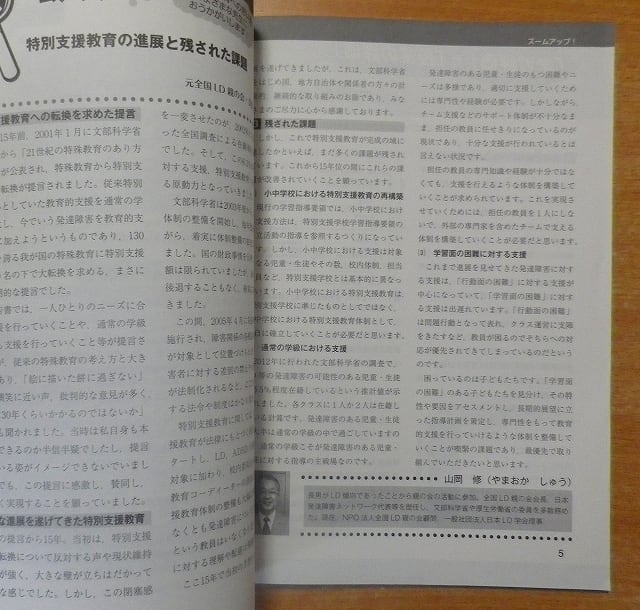 おうかがいします
特別支援教育の進展と残された課題
元全国LD親の会
教育への転換を求めた提言
15年前、2001年1月に文部科学省
から「21世紀の特殊教育のあり方
が公表され、特殊教育から特別支
転換が提言されました。従来特別
としていた教育の支援を通常の学
し、今でいう発達障害を教育的支
に加えようというものであり、130
を誇る我が国の特殊教育に特別支援
名の下で大転換を求める、まさに
的な提言でした。
書では、一人ひとりのニーズに合
を行っていくことや、通常の学級
も支援を行っていくこと等が提言さ
が、従来の特殊教育の考え方と大き
あり、「絵に描いた餅に過ぎない」
笑に近い声、批判的な意見が多く、
30年くらいかかるのではないか」
も聞かれました。当時は私自身も本
できるのか半信半疑でしたし、提言
いる姿がイメージできないでいまし
でも、この提言に感激し、賛同し、
く実現することを願っていました。
な進展を遂げてきた特別支援教育
の提言から15年、当初は、特別支援
転換について反対する声や現状維持
が強く、大きな壁が立ちはだかって
な感じでした。しかし、この閉塞感
を一変させたのが、2002年
った全国調査による衝撃
でした。そして、この
対する支援、特別支援教
る原動力となっていきま
文部科学省は2003年
体制の整備を開始し、毎
がら、着実に体制整備の
ました。国の財政事情も
額は限られていましたが、
後退することもなく、着実
きました。
この間、2005年4月に
施行され、障害関係の
が対象として位置づけら
害者に対する差別の禁止
が法制化されるなど、
する法令や制度はかなり
特別支援教育に関しても
援教育が法律にもとづ
タートし、LD、ADHD
対象に加わり、校内委
教育コーディネーターの
援教育体制の整備も大幅
なくとも発達障害に
という教員はいなくなり
に対する理解や配慮は
ここ15年で当初の予想
ズームアップ!
を遂げてきましたが、これは、文部科学省
はじめ国、地方自治体や関係者の方々の計
的、継続的な取り組みのお蔭であり、みな
さまのご尽力に心から感謝しております。
残された課題
しかし、これで特別支援教育が完成の域に
したかといえば、まだ多くの課題が残され
ています。これから15年位の間にこれらの課
が改善されていくことを願っています。
小中学校における特別支援教育の再構築
現行の学習指導要領では、小中学校におけ
支援方法は、特別支援学校学習指導要領の
立活動の指導を参照するつくりになってい
す。しかし、小中学校における支援は対象
なる児童・生徒やその数、校内体制、担当
員など、特別支援学校とは基本的に異なっ
います。小中学校における特別支援教育は、
別支援学校に準じたものとしてではなく、
中学校における特別支援教育体制として、
に確立していくことが必要だと思います。
通常の学級における支援
2012年に行われた文部科学省の調査で、
等の発達障害の可能性のある児童・生徒
6.5%程度在籍しているという推計値が示
れました。各クラスに1人か2人は在籍し
いる計算です。発達障害のある児童・生徒
大半は通常の学級の中で過ごしていますの
、通常の学級こそが発達障害のある児童・
に対する指導の主戦場なのです。
発達障害のある児童・生徒のもつ困難やニ
ーズは多様であり、適切に支援していくため
には専門性や経験が必要です。しかしながら、
チーム支援などのサポート体制が不十分なま
ま、担任の教員に任せきりになっているのが
現状であり、十分な支援が行われているとは
言えない状況です。
担任の教員の専門知識や経験が十分ではな
くても、支援を行えるような体制を構築して
いくことが求められています。これを実現さ
せていくためには、担任の教員を1人にしな
いで、外部の専門家を含めたチームで支える
体制を構築していくことが必要だと思います。
(3) 学習面の困難に対する支援
これまで進展を見せてきた発達障害に対す
る支援は、「行動面の困難」に対する支援が
中心になっていて、「学習面の困難」に対す
る支援は出遅れています。「行動面の困難」
は問題行動となって表れ、クラス運営に支障
をきたすなど、教員が困るのでそちらへの対
応が優先されてきてしまっているのだという
のです。
困っているのは子どもたちです。「学習面
の困難」のある子どもたちを見分け、その特
性や要因をアセスメントし、長期的展望に立
った指導計画を策定し、専門性をもって教育
的支援を行っていけるような体制を整備して
いくことが喫緊の課題であり、最優先で取り
組んでいただきたいと思います。
山岡 修(やまおか しゅう)
長男がLD傾向であったことから親の会の活動に参加。全国LD親の会会長、日本
発達障害ネットワーク代表等を歴任し、文部科学省や厚生労働省の委員を多数務め
た。現在、NPO法人全国LD親の会顧問、一般社団法人日本LD学会理事
5